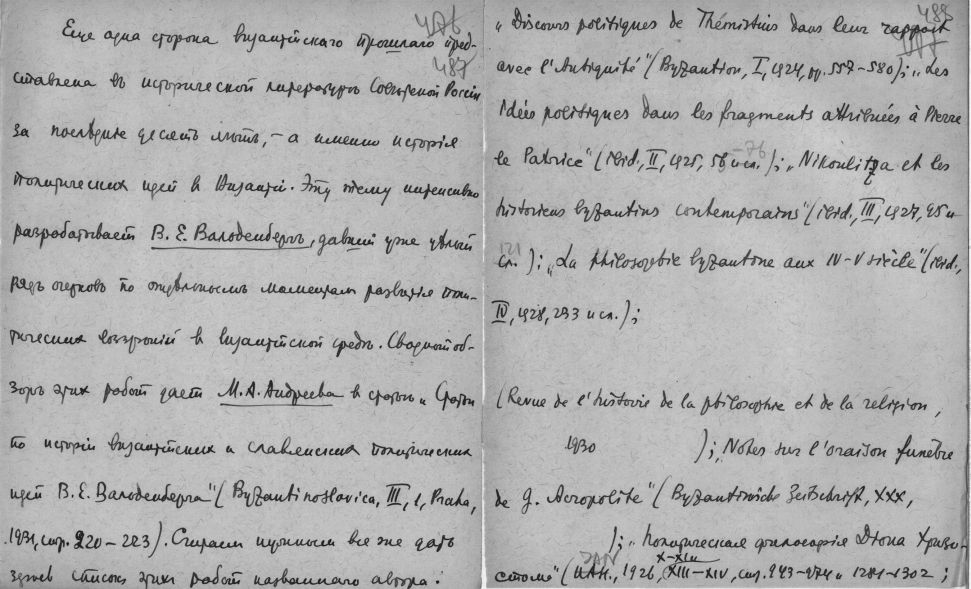 476
Еще одна сторона византійскаго прошлаго пред-
487
ставлена въ исторической литературѣ Совѣтской Россіи
за послѣдніе десять лѣтъ, – а именно исторія
политическихъ идей в Византіи. Эту тему интенсивно
разрабатывает В. Е. Вальденбергъ, давшій уже цѣлый
рядъ очерковъ по отдѣльнымъ моментам развитія поли-
тическихъ воззрѣній в византійской средѣ. Сводный об-
зоръ этих работ дает М. А. Андреева в статьѣ „Статьи
по исторіи византійских и славянских политических
идей В. Е. Вальденберга" (Byzantinoslavica, III, 1, Praha,
1931, стр. 220–223). Считаем нужным все же дать
здѣсь список этих работ названнаго автора:
488
„Discours politiques de Thémistius dans leur rapport
avec l'Antiquité" (Byzantion, I, 1924, pp. 557–580); „Les
idées politiques dans les fragments attribués à Pierre
le Patrice" (ibid., II, 1925, 56 и сл. –76); „Nikoulitza et les
historiens byzantins contemporains" (ibid., III, 1927, 95 и
121
сл.); „La philosophie byzantine aux IV–V siècle" (ibid.,
IV, 1928, 233 и сл.);
(Revue de l'histoire de la philosophie et de la religion,
1930 ); „Notes sur l'oraison funèbre
de G. Acropolite" (Byzantinische Zeitschrift, XXX,
); „Политическая философія Діона Хризо-
X–XIII
стома" (ИАН., 1926, XIII–XIV, стр. 943–974 и 1281–1302;